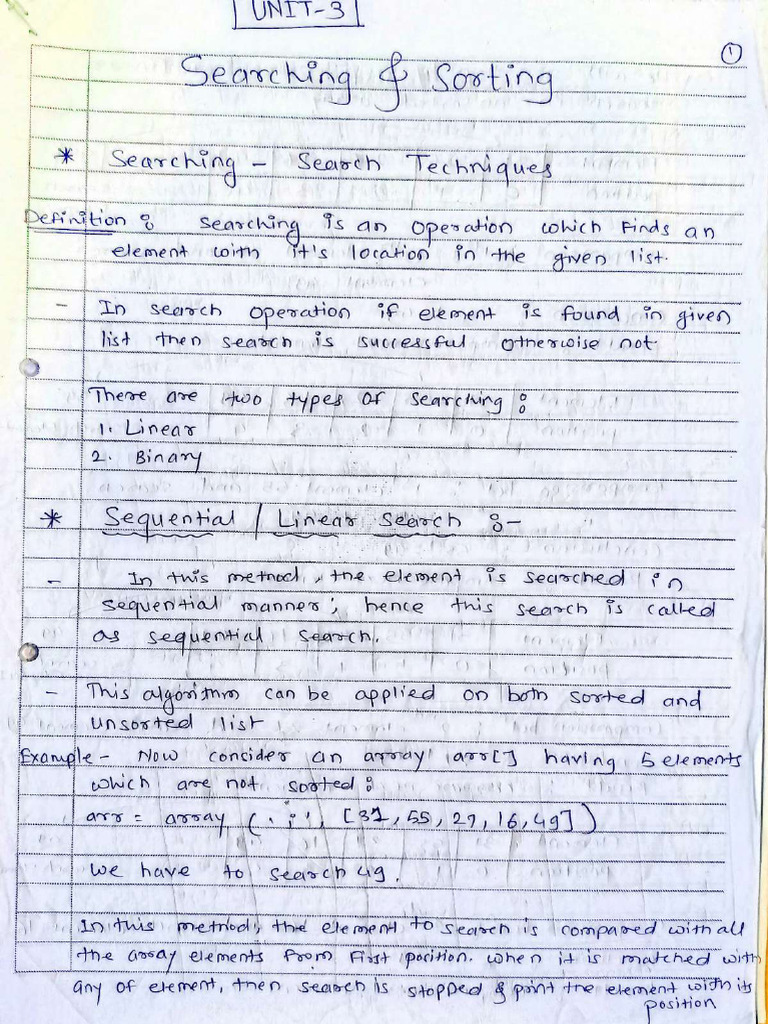 UNIT-3
1
Searching & Sorting
* Searching - Search Techniques
Definition : Searching is an operation which finds an
element with it's location in the given list.
- In search operation if element is found in given
list then search is successful otherwise not.
There are two types of searching :
1. Linear
2. Binary
* Sequential / Linear Search :-
- In this method, the element is searched in
sequential manner; hence this search is called
as sequential search.
- This algorithm can be applied on both sorted and
unsorted list
Example - Now consider an array arr[] having 5 elements
which are not sorted :
arr = array ('i', [31, 55, 29, 16, 49])
we have to search 49.
In this method, the element to search is compared with all
the array elements from first position. when it is matched with
any of element, then search is stopped & print the element with its
position